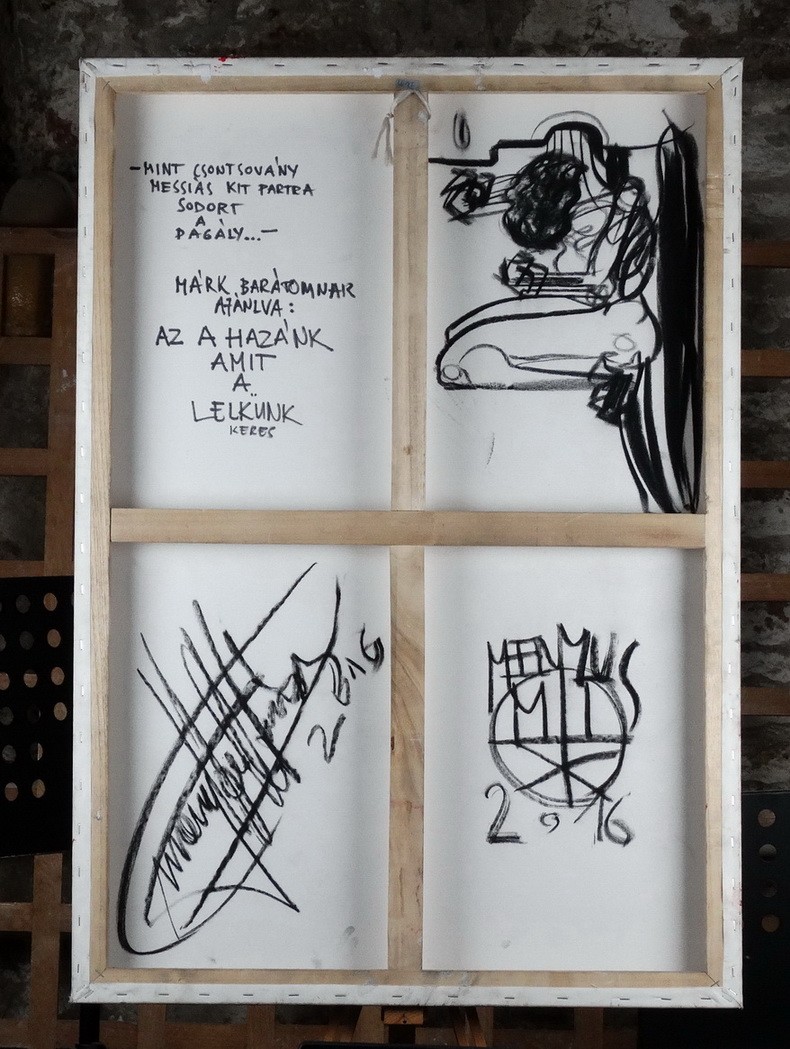 -MINT CSONTSOVÁNY
MESSIÁS KIT PARTRA
SODORT
A
DAGÁLY...-
MÁRK BARÁTOMNAK
AJÁNLVA:
AZ A HAZÁNK
AMIT
A
LELKÜNK
KERES
2016
MT
2016